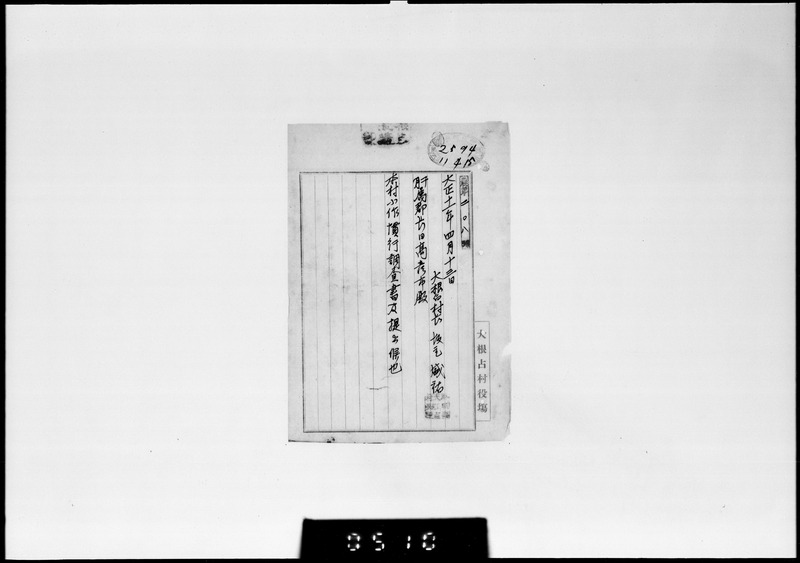 2594
11 4 15
二〇八號
大正十一年四月十三日
大根占村長
肝属郡長日高彦市殿
本村小作慣行調査書及提出候也
大根占村役場
0510